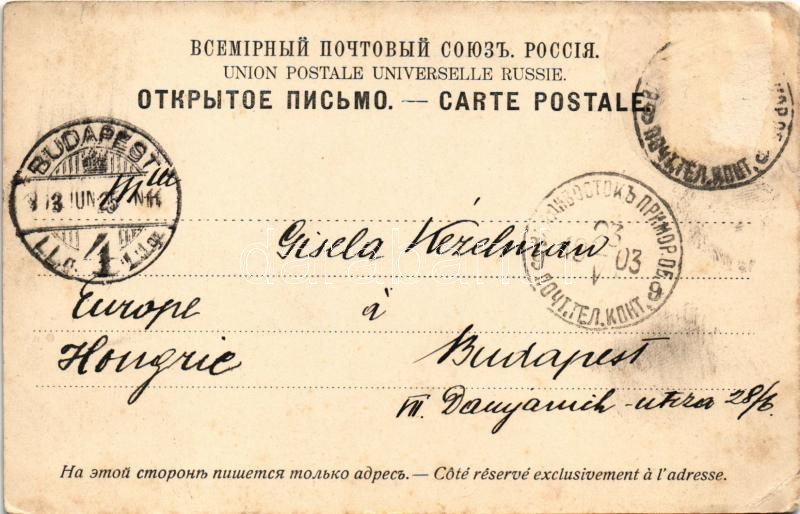 ВСЕМIРНЫЙ ПОЧТОВЫЙ СОЮЗЪ. РОССIЯ.
UNION POSTALE UNIVERSELLE RUSSIE.
ОТКРЫТОЕ ПИСЬМО. — CARTE POSTALE
ПОЧТ.ТЕЛ.КОНТ.
BUDAPEST
JUN
ВОСТОКЪ ПРИМОР.ОБ.
23
03
V
ПОЧТ.ТЕЛ.КОНТ.
Gisela Kézelman
Europe à
Hongrie Budapest
VII. Damjanich-utcza 28/b.
На этой сторонѣ пишется только адресъ. — Côté réservé exclusivement à l'adresse.